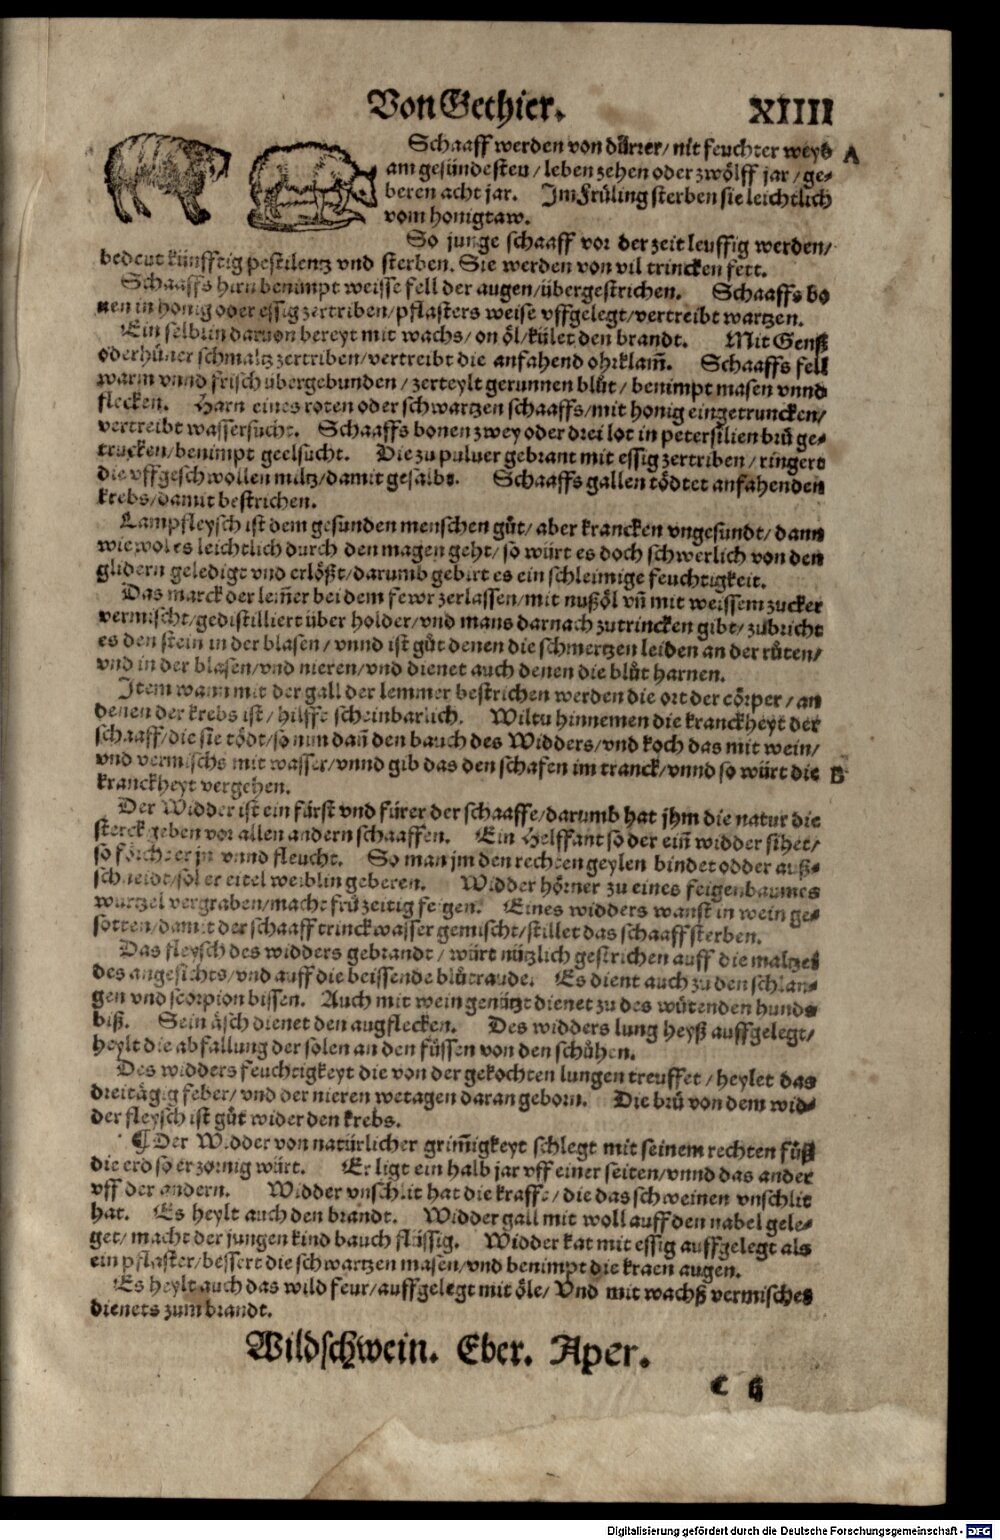 Von Gethier. XIIII
Schaaff werden von dürrer/nit feuchter weyd A
am gesündesten/leben zehen oder zwölff jar/ge-
beren acht jar. Im Früling sterben sie leichtlich
vom honigtaw.
So junge schaaff vor der zeit leuffig werden/
bedeut künfftig pestilentz vnd sterben. Sie werden von vil trincken fett.
Schaaffs hirn benimpt weisse fell der augen/übergestrichen. Schaaffs bo
nen in honig oder essig zertriben/pflasters weise vffgelegt/vertreibt wartzen.
Ein selblin daruon bereyt mit wachs/on öl/kület den brandt. Mit Genß
oder hüner schmaltz zertriben/vertreibt die anfahend ohrklam̃. Schaaffs fell
warm vnnd frisch übergebunden/zerteylt gerunnen blůt/benimpt masen vnnd
flecken. Harn eines roten oder schwartzen schaaffs/mit honig eingetruncken/
vertreibt wassersucht. Schaaffs bonen zwey oder drei lot in petersilien brü ge-
truncken/benimpt geelsucht. Die zu puluer gebrant mit essig zertriben/ringert
die vffgeschwollen miltz/damit gesalbt. Schaaffs gallen tödtet anfahenden
krebs/damit bestrichen.
Lampfleysch ist dem gesunden menschen gůt/aber krancken vngesundt/dann
wiewol es leichtlich durch den magen geht/so würt es doch schwerlich von den
glidern geledigt vnd erlößt/darumb gebirt es ein schleimige feuchtigkeit.
Das marck der lem̃er bei dem fewr zerlassen/mit nußöl vñ mit weissem zucker
vermischt/gedistilliert über holder/vnd mans darnach zutrincken gibt/zůbricht
es den stein in der blasen/vnnd ist gůt denen die schmertzen leiden an der růten/
vnd in der blasen/vnd nieren/vnd dienet auch denen die blůt harnen.
Item wann mit der gall der lemmer bestrichen werden die ort der cörper/an
denen der krebs ist/hilffe scheinbarlich. Wiltu hinnemen die kranckheyt der
schaaff/die sie tödt/so nim dañ den bauch des Widders/vnd koch das mit wein/
vnd vermischs mit wasser/vnnd gib das den schafen im tranck/vnnd so würt die B
kranckheyt vergehen.
Der Widder ist ein fürst vnd fürer der schaaffe/darumb hat jhm die natur die
sterck geben vor allen andern schaaffen. Ein Helffant so der eiñ widder sihet/
so förchtet er jn vnnd fleucht. So man jm den rechten geylen bindet odder auß-
schneidt/sol er eitel weiblin geberen. Widder hörner zu eines feigenbaumes
wurtzel vergraben/macht früzeitig feigen. Eines widders wanst in wein ge-
sotten/damit der schaaff trinckwasser gemischt/stillet das schaaff sterben.
Das fleysch des widders gebrandt/würt nützlich gestrichen auff die maltzei
des angesichts/vnd auff die beissende blůtraude. Es dient auch zu den schlan-
gen vnd scorpion bissen. Auch mit wein genätzt dienet zu des wütenden hunds
biß. Sein äsch dienet den augflecken. Des widders lung heyß auffgelegt/
heylt die abfallung der solen an den füssen von den schůhen.
Des widders feuchtigkeyt die von der gekochten lungen treuffet/heylet das
dreitägig feber/vnd der nieren wetagen daran geborn. Die brü von dem wid-
der fleysch ist gůt wider den krebs.
¶ Der Widder von natürlicher grim̃igkeyt schlegt mit seinem rechten fůß
die erd so er zornig würt. Er ligt ein halb jar vff einer seiten/vnnd das ander
vff der andern. Widder vnschlit hat die kraffe/die das schweinen vnschlit
hat. Es heylt auch den brandt. Widder gall mit woll auff den nabel gele-
get/macht der jungen kind bauch flüssig. Widder kat mit essig auffgelegt als
ein pflaster/bessert die schwartzen masen/vnd benimpt die kraen augen.
Es heylt auch das wild feur/auffgelegt mit öle/Vnd mit wachß vermischet
dienets zum brandt.
Wildschwein. Eber. Aper.
c ij
Digitalisierung gefördert durch die Deutsche Forschungsgemeinschaft - DFG